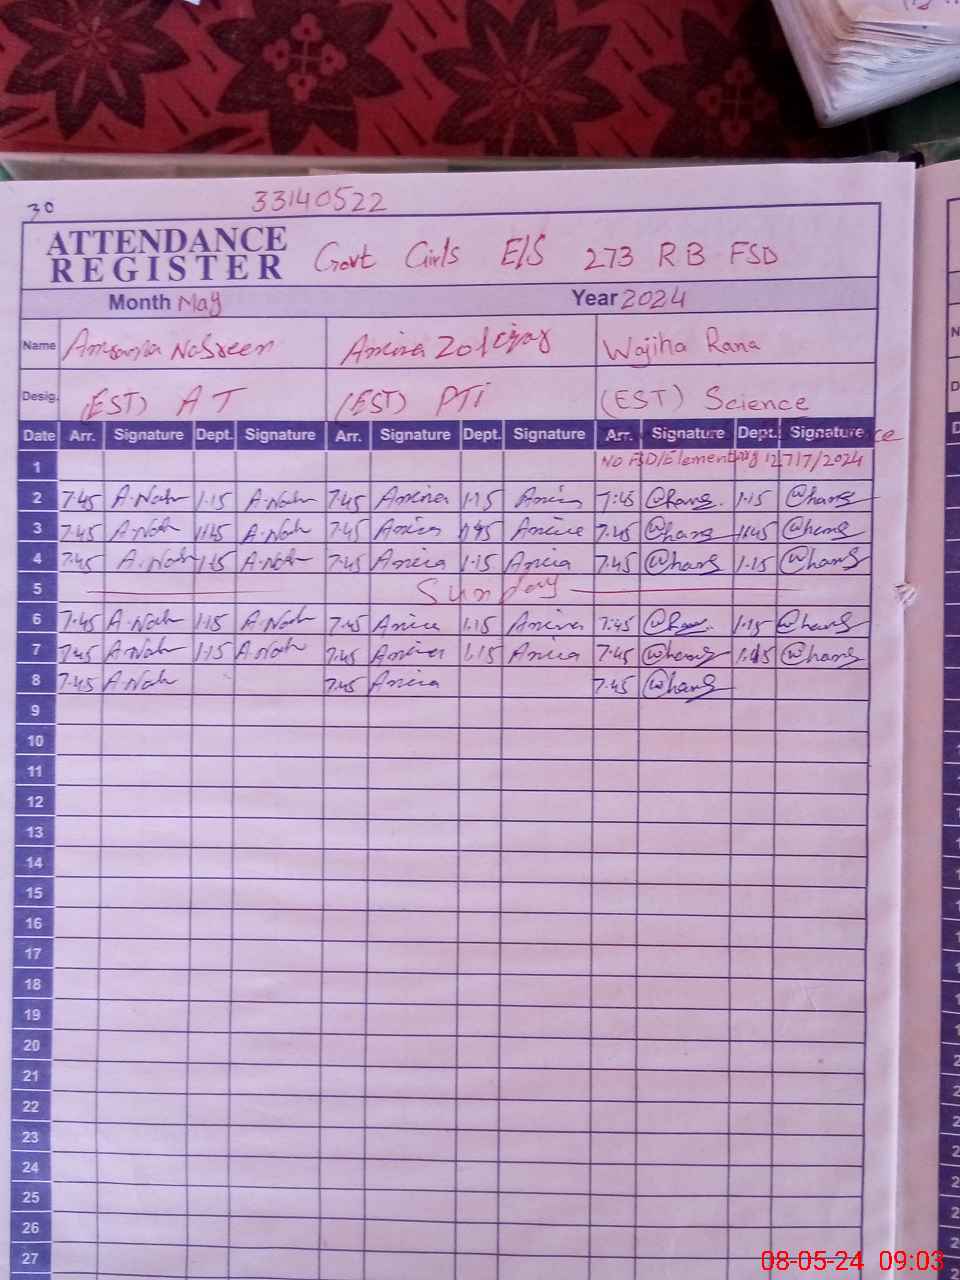 30
33140522
ATTENDANCE REGISTER Govt Girls E/S 273 RB FSD
Month May Year 2024
Name Nasreen Amina Wajiha Rana
Desig. (EST) AT (EST) PTi (EST) Science
Date Arr. Signature Dept. Signature Arr. Signature Dept. Signature Arr. Signature Dept. Signature
1 No FSD/Elementary 7/2024
2 7:45 A.Nash 1:15 A.Nash 7:45 Amina 1:15 Amina 7:45 1:15
3 7:45 A.Nash 11:45 A.Nash 7:45 Amina 11:45 Amina 7:45 11:45
4 7:45 A.Nash 1:15 A.Nash 7:45 Amina 1:15 Amina 7:45 1:15
5 Sunday
6 7:45 A.Nash 1:15 A.Nash 7:45 Amina 1:15 Amina 7:45 1:15
7 7:45 A.Nash 1:15 A.Nash 7:45 Amina 1:15 Amina 7:45
8 7:45 A.Nash 7:45 Amina 7:45
9
10
11
12
13
14
15
16
17
18
19
20
21
22
23
24
25
26
27
08-05-24 09:03